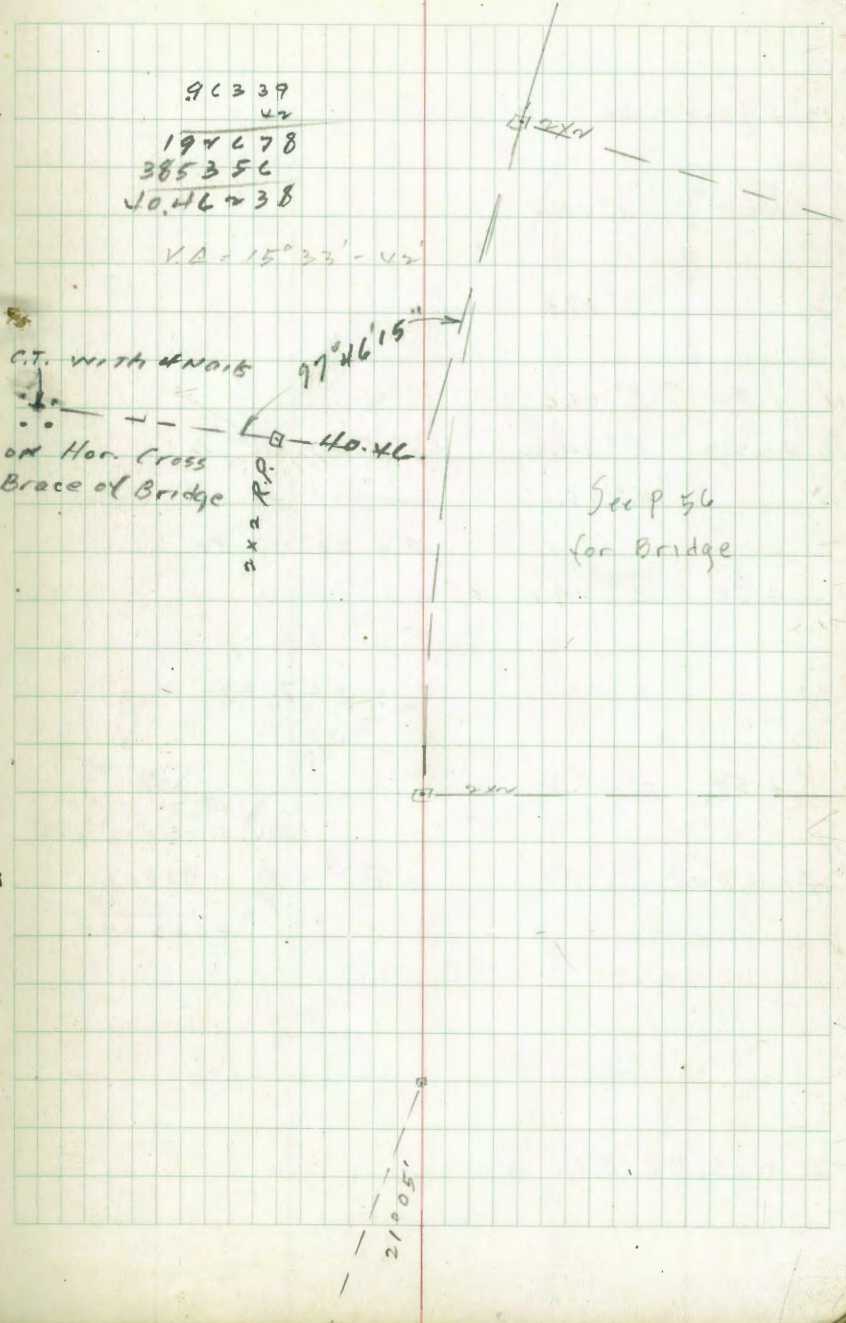 .96339
42
192678
385356
40.46238
V.A = 15°33' - 42'
2x2
97°46'15"
C.T. with 4 Nails
on Hor. Cross
Brace of Bridge
2x2 R.P.
40.46
See P 56
for Bridge
2x2
21°05'